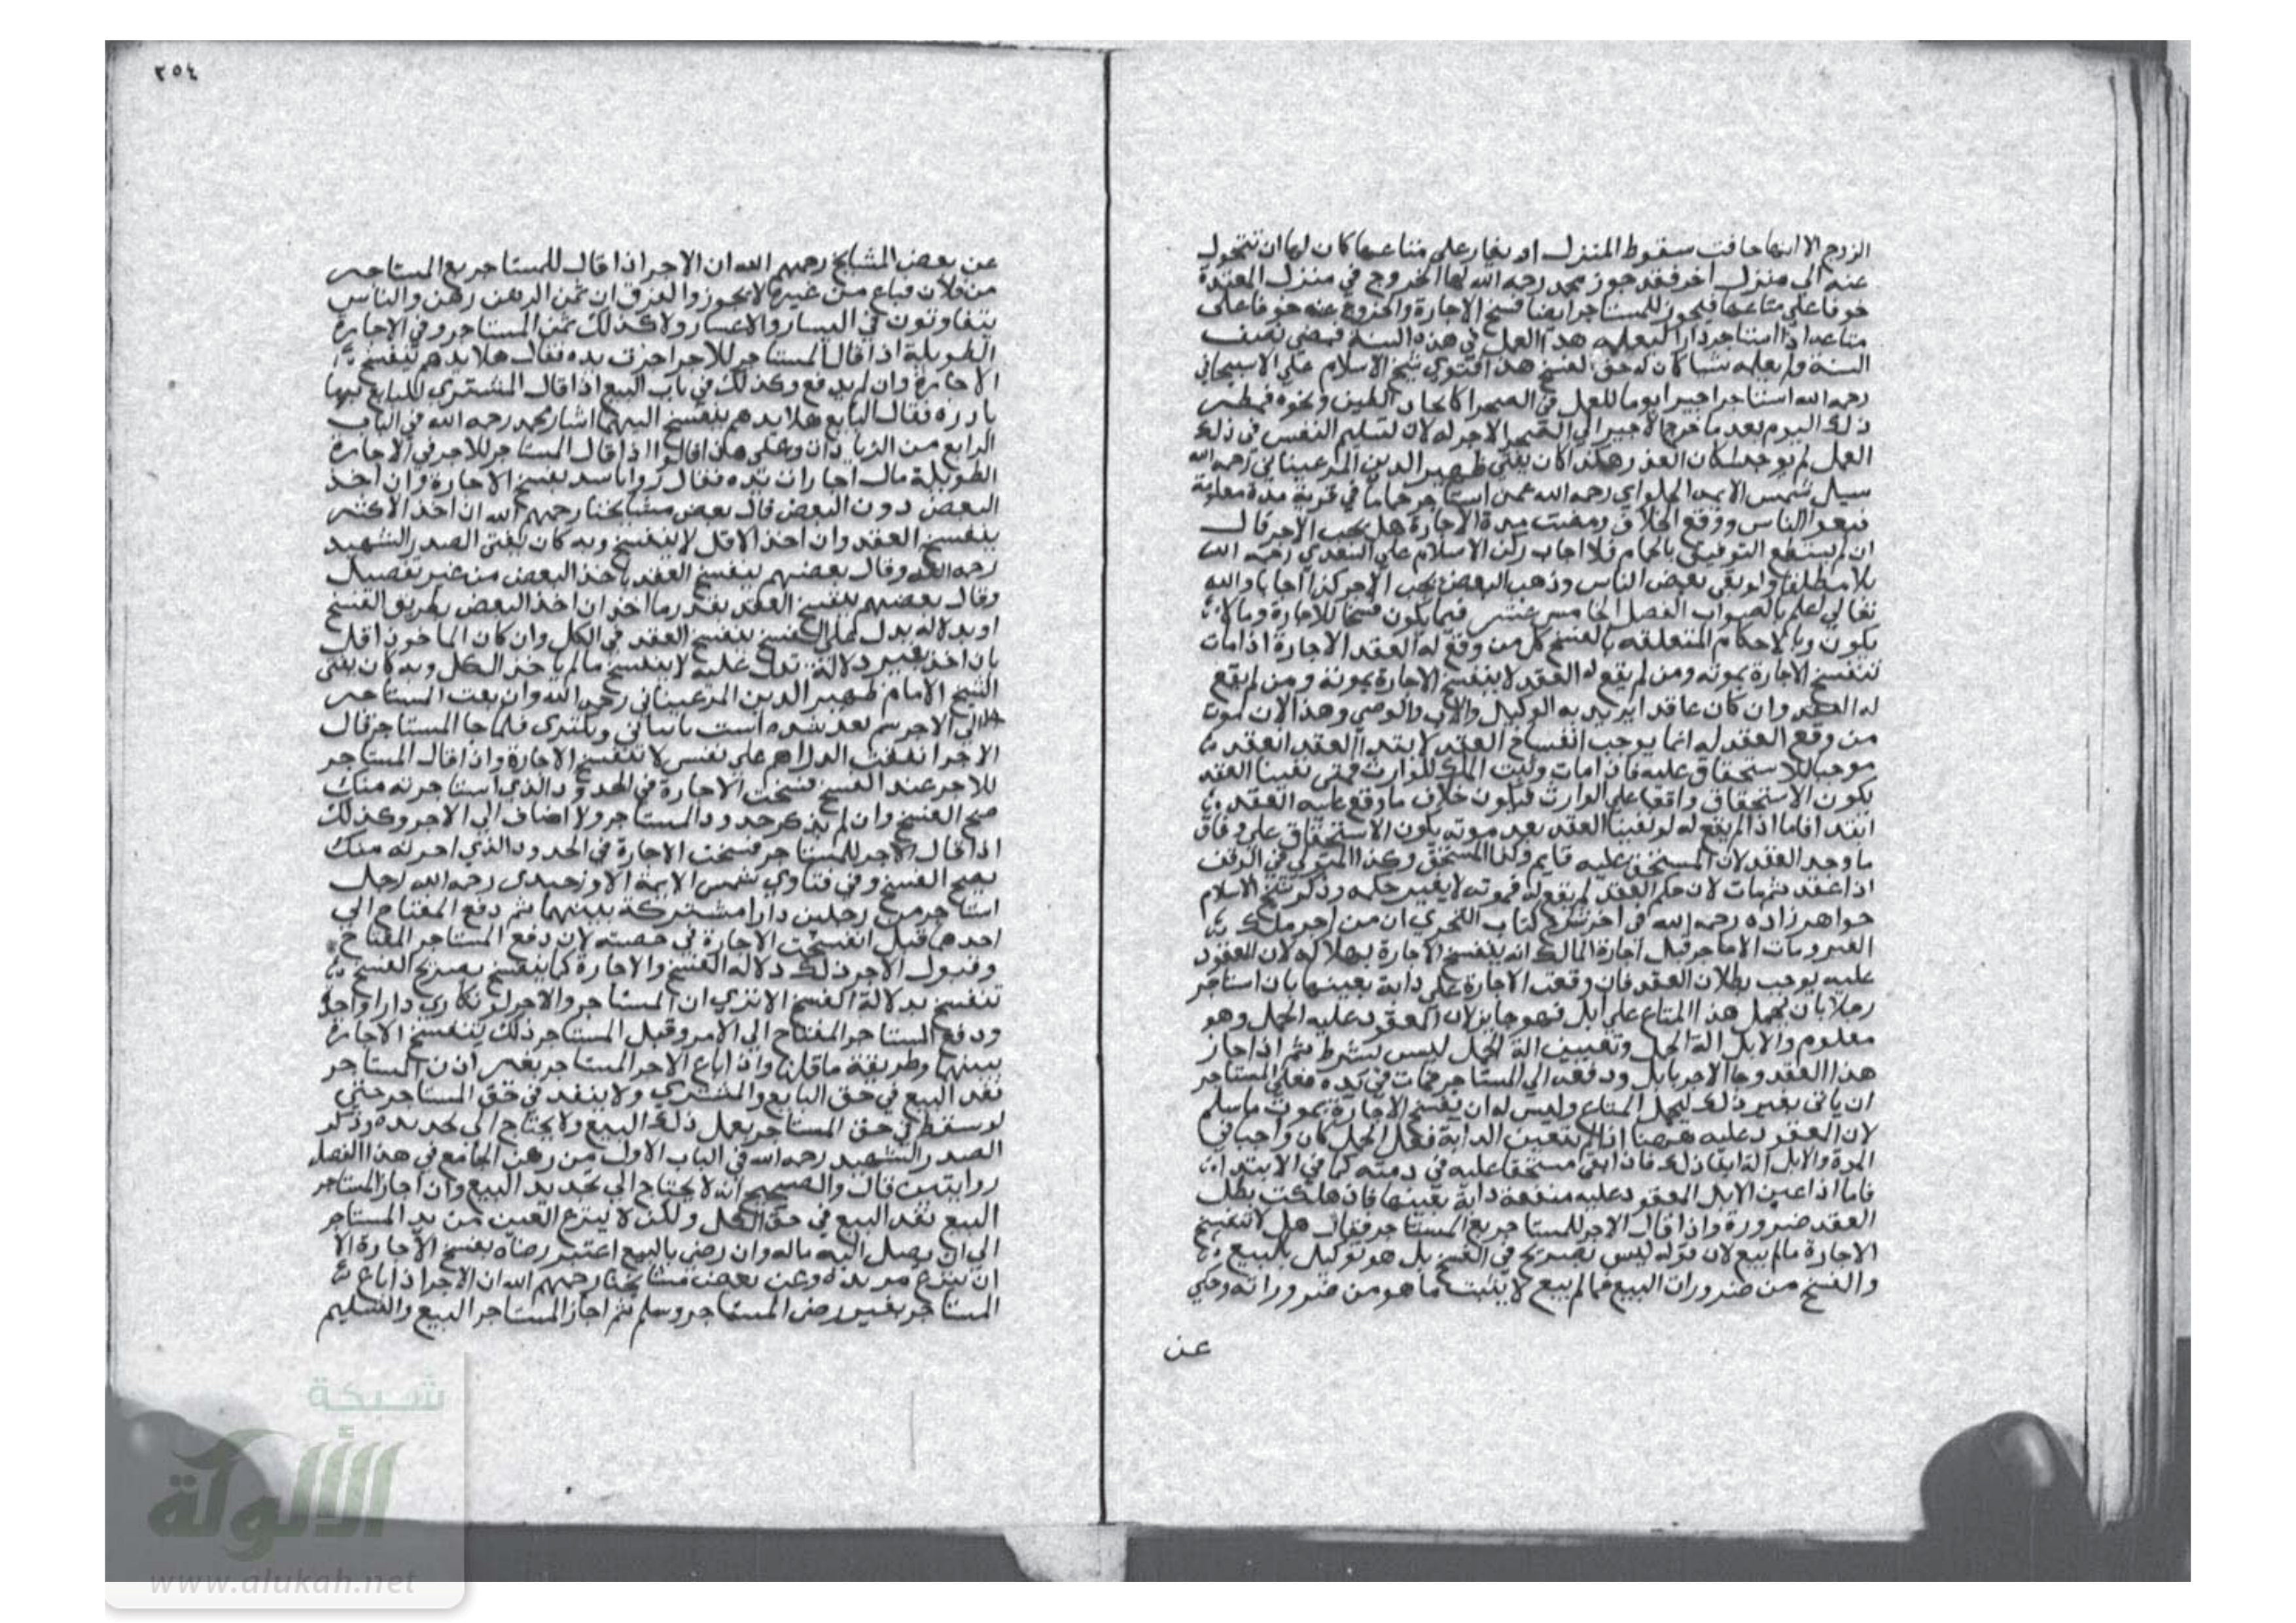 الزوج الا انها خافت سقوط المنزل او يغار على متاعها كان لها ان تتحول
عنه الى منزل اخر فقد جوز محمد رحمه الله لها الخروج في منزل المعتدة
خوفا على متاعها فيجوز للمستاجر ايضا فسخ الاجارة والخروج عنه خوفا على
متاعه اذا استاجر دارا ليعلمه هذا العمل في هذه السنة فمضى نصف
السنة ولم يعلمه شيا كان له حق الفسخ هذا فتوي شيخ الاسلام علي الاسبيجابي
رحمه الله استاجر اجيرا يوما للعمل في الصحرا كاتخاد الطين ونحوه فمطر
ذلك اليوم بعد ما خرج الاجير الى الصحرا لا اجر له لان تسليم النفس في ذلك
العمل لم يوجد لمكان العذر وهكذا كان يفتي ظهير الدين المرغيناني رحمه الله
سيل شمس الايمه الحلواي رحمه الله عمن استاجر حماما في قرية مدة معلومة
فنفر الناس ووقع الجلا ومضت مدة الاجارة هل يجب الاجر قال
ان لم يستطع الترفق بالحمام فلا اجاب ركن الاسلام علي السغدي رحمه الله
بلا مطلقا ولو بقي بعض الناس وذهب البعض يجب الاجر كذا اجابا والله
تعالى اعلم بالصواب الفصل الخامس عشر فيما يكون فسخا للاجارة وما لا
يكون وبالاحكام المتعلقه بالفسخ كل من وقع له العقد الاجارة اذا مات
تنفسخ الاجارة بموته ومن لم يقع له العقد لا ينفسخ الاجارة بموته ومن لم يقع
له العقد وان كان عاقدا يريد به الوكيل والاب والوصي وهذا لان موت
من وقع العقد له انما يوجب انفساخ العقد لا بتدا العقد انعقد
موجبا للاستحقاق عليه فاذا مات وثبت الملك للوارث فمتى بقينا العقد
يكون الاستحقاق واقعا علي الوارث فيكون خلاف ما وقع عليه العقد
ابتدا فاما اذا لم يقع له لو بقينا العقد بعد موته يكون الاستحقاق علي وفاق
ما وجد العقد لان المستحق عليه قايم وكذا المستحق وكذا المتولي في الوقف
اذا عقد ثم مات لان حكم العقد لم يقع له فموته لا يغير حكمه وذكر شيخ الاسلام
خواهر زاده رحمه الله في اخر شرح كتاب التحري ان من اجر ملك
الغير ومات الاجر قبل اجازة المالك انه ينفسخ الاجارة لان العقود
عليه يوجب بطلان العقد فان وقعت الاجارة علي دابة بعينها بان استاجر
رجلا بان يحمل هذا المتاع علي ابل فهو جايز لان المعقود عليه الحمل وهو
معلوم والابل الة الحمل وتعيين الة الحمل ليس بشرط ثم اذا جاز
هذا العقد وجا الاجر بابل ودفعه الي المستاجر فمات في يده فعلي المستاجر
ان ياتي بغير ذلك ليحمل المتاع وليس له ان يفسخ الاجارة بموت ما سلم
لان المعقود عليه ههنا اذا لم يتعين الدابة فعل الحمل كان واجبا في
الذمة والابل الة ايفا ذلك فاذا بقي مستحقا عليه في ذمته كما في الابتدا
فاما اذا عين الابل المعقود عليه منفعة دابة بعينها فاذا هلكت بطل
العقد ضرورة واذا قال الاجر للمستاجر بع المستاجر فقال هل لا تنفسخ
الاجارة مالم يبع لان قوله ليس بصريح في الفسخ بل هو توكيل بالبيع
والفسخ من ضرورات البيع فما لم يبع لا يثبت ما هو من ضروراته وحكي
عن
٢٥٤
عن بعض المشايخ رحمهم الله ان الاجر اذا قال للمستاجر بع المستاجر
من فلان فباع من غيره لا يجوز والفرق ان ثمن الرهن رهن والناس
يتفاوتون في اليسار والاعسار ولا كذلك ثمن المستاجر وفي الاجارة
الطويلة اذا قال المستاجر للاجر بده فقال هلا بدهم ينفسخ
الاجارة وان لم يدفع وكذلك في باب البيع اذا قال المشتري للبايع بها
بازده فقال البايع هلا بدهم ينفسخ البيع اشار محمد رحمه الله في الباب
الرابع من الزيادات وعلى هذا قالوا اذا قال المستاجر للاجر في الاجارة
الطويلة مال اجارات بده فقال روا باشد يفسخ الاجارة وان اخذ
البعض دون البعض قال بعض مشايخنا رحمهم الله ان اخذ الاكثر
ينفسخ العقد وان اخذ الاقل لا ينفسخ وبه كان يفتي الصدر الشهيد
رحمه الله وقال بعضهم ينفسخ العقد باخذ البعض من غير تفصيل
وقال بعضهم ينفسخ العقد بقدر ما اخذ ان اخذ البعض بطريق الفسخ
او بدلاله يدل علي الفسخ ينفسخ العقد في الكل وان كان الماخوذ اقل
بان اخذ بغير دلالة تدل عليه لا ينفسخ مالم ياخذ الكل وبه كان يفتي
الشيخ الامام ظهير الدين المرغيناني رحمه الله وان بعث المستاجر
الي الاجر سيم نقد شده است بيا وبكيري فلما جا المستاجر قال
الاجر انفقت الدراهم علي نفسي لا تنفسخ الاجارة واذا قال المستاجر
للاجر عند الفسخ فسخت الاجارة في الحدود الذي استاجرته منك
صح الفسخ وان لم يذكر حدود المستاجر ولا اضاف الي الاجر وكذلك
اذا قال الاجر للمستاجر فسخت الاجارة في الحدود الذي اجرته منك
يصح الفسخ وفي فتاوي شمس الايمة الاوزجندي رحمه الله رجل
استاجر من رجلين دارا مشتركة بينهما ثم دفع المفتاح الي
احدهما قبل انفسخت الاجارة في حصته لان دفع المستاجر المفتاح
وقبول الاجر ذلك دلالة الفسخ والاجارة كما ينفسخ بصريح الفسخ
تنفسخ بدلالة الفسخ الا تري ان المستاجر والاجر لو تكاري دارا واحدا
ودفع المستاجر المفتاح الي الاجر وقبل المستاجر ذلك ينفسخ الاجارة
بينهما وطريقة ما قلنا واذا باع الاجر المستاجر بغير اذن المستاجر
نفذ البيع في حق البايع والمشتري ولا ينفذ في حق المستاجر حتى
لو سقط حق المستاجر يعمل ذلك البيع ولا يحتاج الي تجديده وذكر
الصدر الشهيد رحمه الله في الباب الاول من رهن الجامع في هذا الفصل
روايتين قال والصحيح انه لا يحتاج الي تجديد البيع وان اجاز المستاجر
البيع نفذ البيع في حق الكل ولكن لا ينزع العين من يد المستاجر
الي ان يصل اليه ماله وان رضي بالبيع اعتبر رضاه بفسخ الاجارة لا
ان ينزع من يده وعن بعض مشايخنا رحمهم الله ان الاجر اذا باع
المستاجر بغير رضى المستاجر وسلم ثم اجاز المستاجر البيع والتسليم
شبكة
الألوكة
www.alukah.net